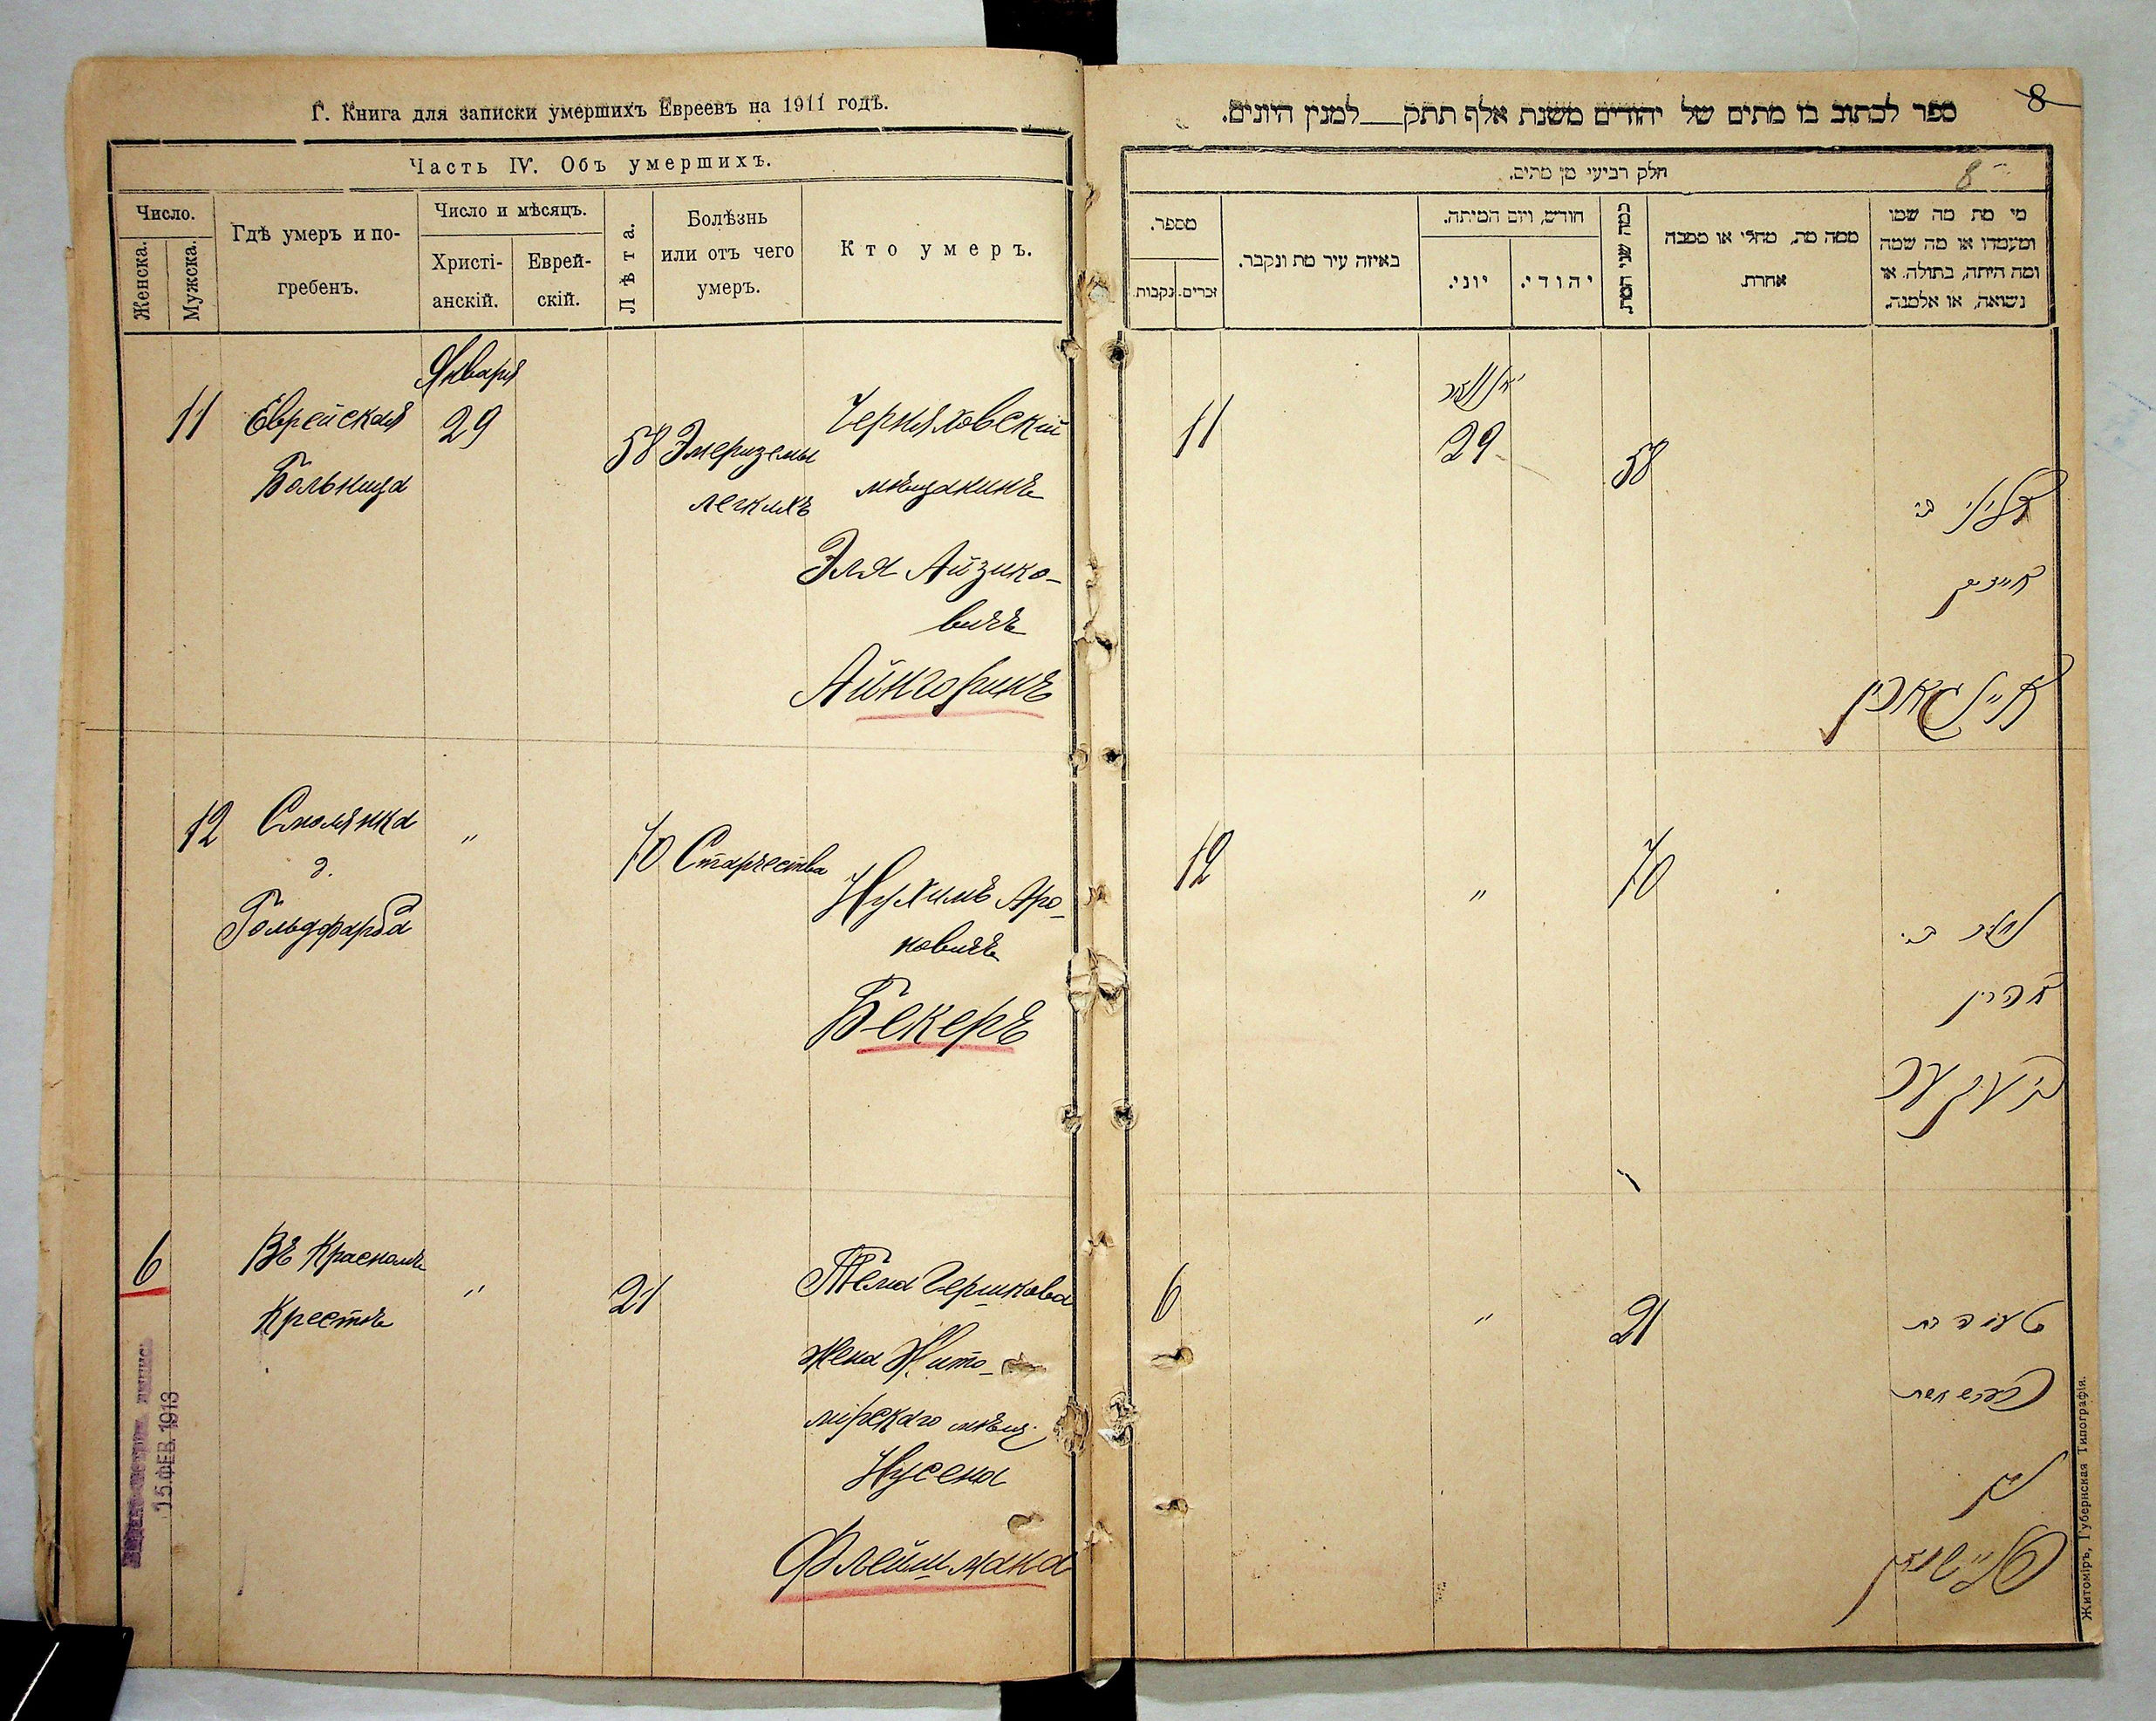 Г. Книга для записки умершихъ Евреевъ на 1911 годъ.
Часть IV. Объ умершихъ.
Число.
Женска.
Мужска.
Гдѣ умеръ и по-
гребенъ.
Число и мѣсяцъ.
Христі-
анскій.
Еврей-
скій.
Лѣта.
Болѣзнь
или отъ чего
умеръ.
Кто умеръ.
Января
11
Еврейская
Больница
29
58
Эмфиземы
легкихъ
Черняховскій
мѣщанинъ
Эля Айзико-
вичъ
Айнгоринъ
12
Смолянка
д.
Гольдфарба
"
70
Старчества
Нухимъ Аро-
новичъ
Бекеръ
6
Въ Красномъ
Крестѣ
"
21
Гершкова
жена Жито-
мірскаго мѣщ.
Нусена
Флейшмана
15.ФЕВ.1913
ספר לכתוב בו מתים של יהודים משנת אלף תתק למנין היונים.
8
חלק רביעי מן מתים.
8
מספר.
זכרים.
נקבות
באיזה עיר מת ונקבר.
חודש, ויום המיתה.
יוני.
יהודי.
כמה שני המת.
ממה מת, מחלי או מסבה
אחרת.
מי מת מה שמו
ומעמדו או מה שמה
ומה היתה, בתולה או
נשואה, או אלמנה.
יאנואר
11
29
58
אייזיק
איינגארין
12
"
70
אהרן
בעקער
6
"
21
פליישמאן
Житоміръ, Губернская Типографія.